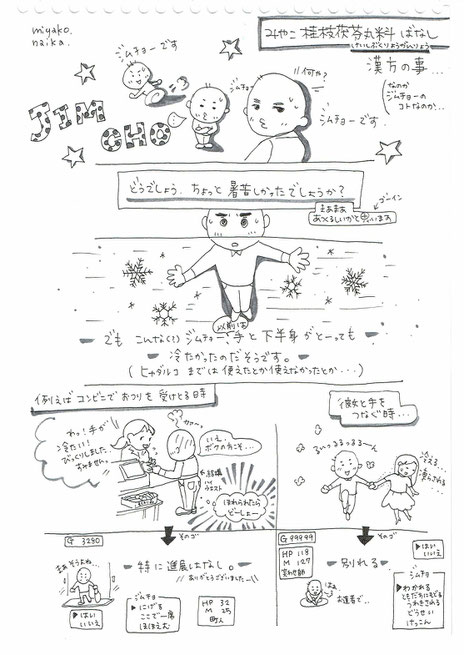 miyako.
naika.
みやこ 桂枝茯苓丸料 ばなし
けいしぶくりょうがんりょう
漢方の事...
なのか
ジムチョーの
コトなのか...
ジムチョーです
ジムチョー
何や?
ジムチョーです
JIM
CHO
どうでしょう、ちょっと暑苦しかったでしょうか?
ゴーイン
まぁまぁ
あつくるしいかと思います
以前は
でも こんな(?)ジムチョー、手と下半身がとーっても
冷たかったのだそうです。
(ヒャダルコ までは使えたとか使えなかったとか...)
例えばコンビニでおつりを受けとる時
わっ!手が
冷たい!
びっくりしました
すみません。
いえ、
ボクの方こそ...
ほれられたら
どーしょー
彼女と手を
つなぐ時...
るんっるるっるるーん
冷える...
そのゴ
G 3280
まぁ そうよね...
特に進展はなし。
ありがとうございましたー
はい
いいえ
ジムチョ
にげる
ここで一席
ほほえむ
HP 32
M 25
町人
そのゴ
G 99999
HP 118
M 127
別れる
お達者で...
はい
いいえ
ジムチョ
わかれる
ともだちにもどる
うわきされる
どうせい
けっこん